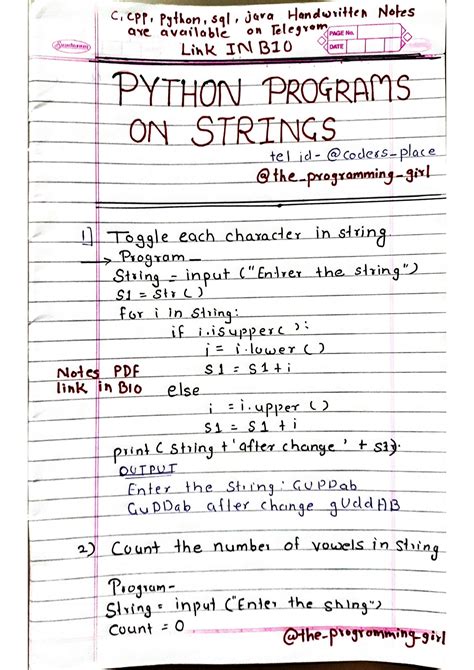 C, CPP, Python, sql, java Handwritten Notes
are available on Telegram
Link IN BIO
PAGE No.
DATE
PYTHON PROGRAMS
ON STRINGS
tel id - @coders_place
@the_programming_girl
1] Toggle each character in string.
→ Program _
String = input ("Entrer the string")
S1 = Str ( )
for i in string:
if i.isupper( ):
i = i.lower ( )
S1 = S1 + i
Notes PDF
link in BIO
else
i = i.upper ( )
S1 = S1 + i
print ( string + 'after change ' + S1).
OUTPUT
Enter the String: GUPDab
GuDDab after change gUddAB
2) Count the number of vowels in string
Program -
String = input ("Enter the string")
Count = 0
@the-programming-girl